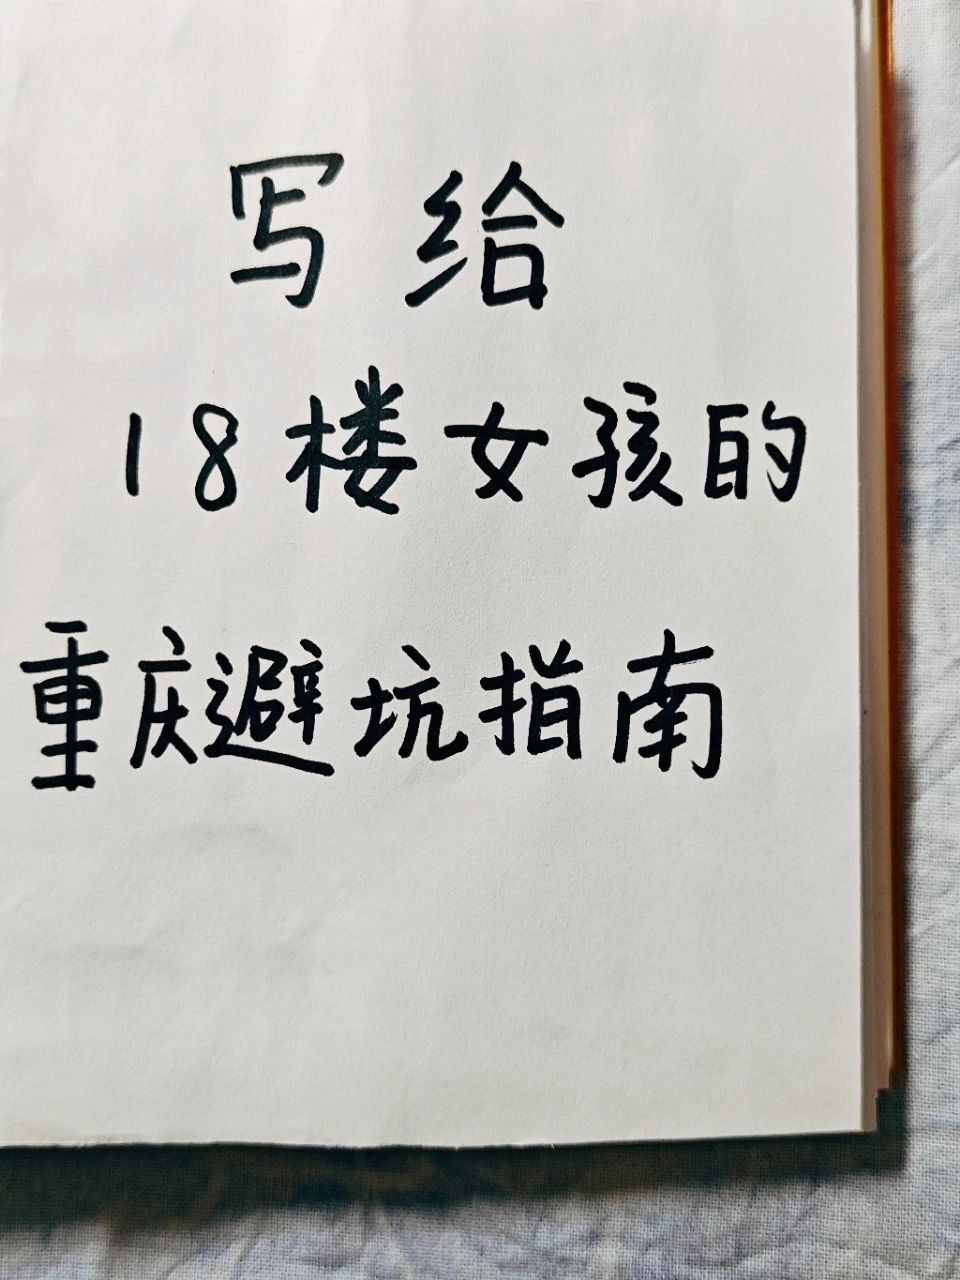 写给
18楼女孩的
重庆避坑指南